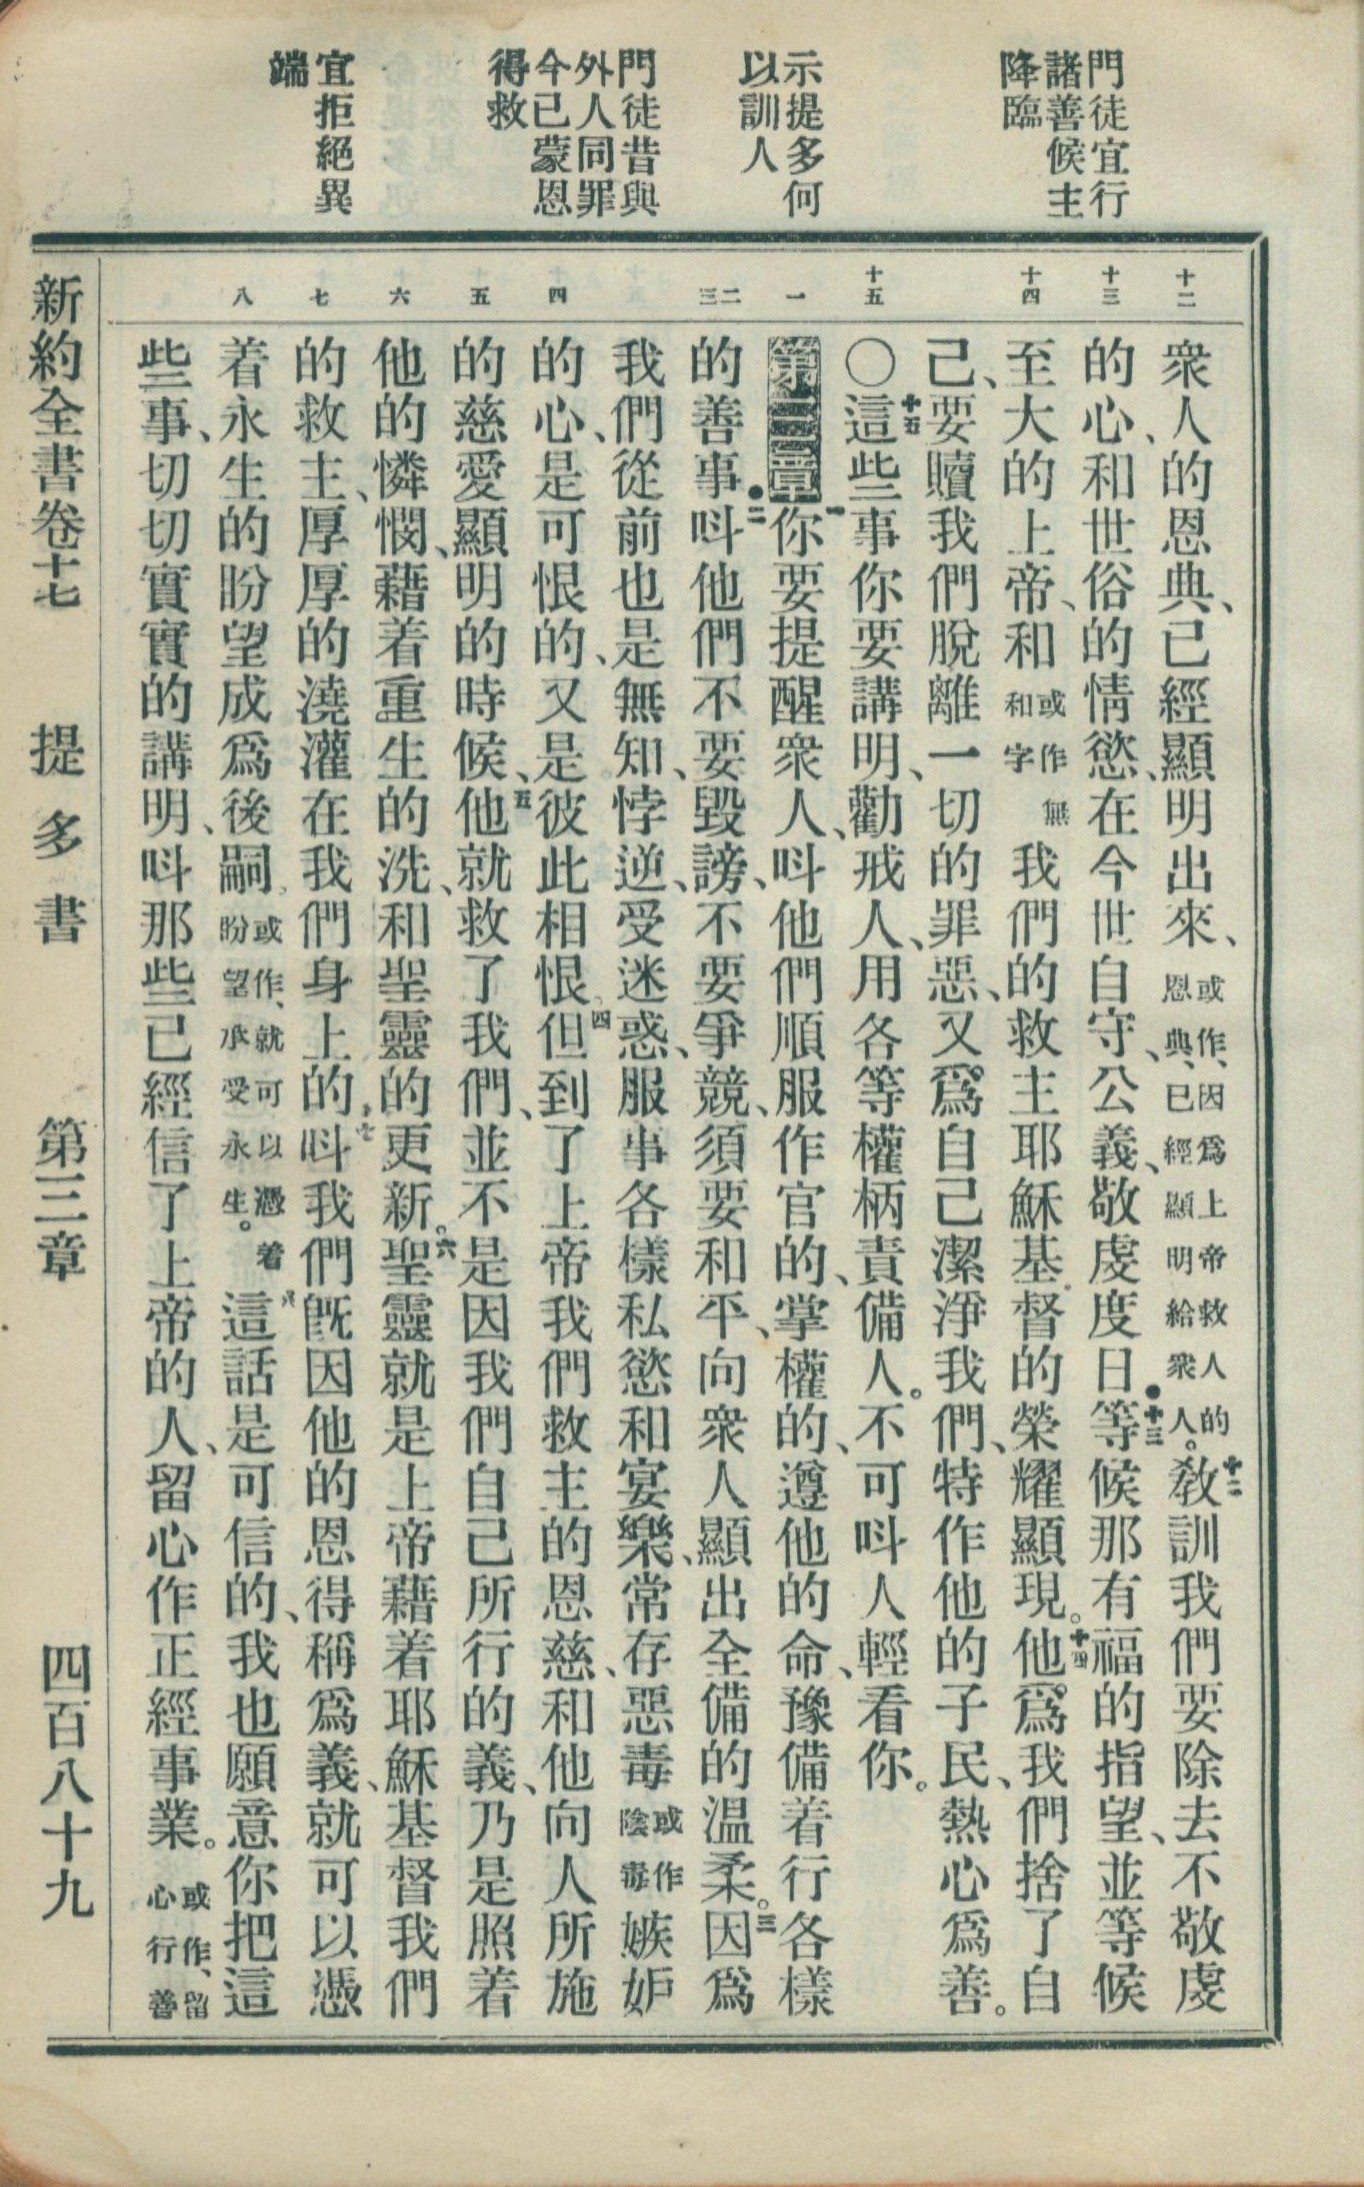 門徒宜行
諸善候主
降臨
示提多何
以訓人
門徒昔與
外人同罪
今已蒙恩
得救
宜拒絕異
端
十二
十三
十四
十五
一
二
三
四
五
六
七
八
衆人的恩典、已經顯明出來、或作、因爲上帝救人的恩典、已經顯明給衆人。十二教訓我們要除去不敬虔
的心、和世俗的情慾、在今世自守、公義、敬虔度日●十三等候那有福的指望、並等候
至大的上帝、和或作無和字我們的救主耶穌基督的榮耀顯現。十四他爲我們捨了自
己、要贖我們脫離一切的罪惡、又爲自己潔淨我們、特作他的子民、熱心爲善。
〇十五這些事你要講明、勸戒人、用各等權柄責備人。不可呌人輕看你。
第三章一你要提醒衆人、呌他們順服作官的、掌權的、遵他的命、豫備着行各樣
的善事●二呌他們不要毀謗、不要爭競、須要和平、向衆人顯出全備的温柔。三因爲
我們從前也是無知、悖逆、受迷惑、服事各樣私慾和宴樂、常存惡毒或作陰毒嫉妒
的心、是可恨的、又是彼此相恨、四但到了上帝我們救主的恩慈、和他向人所施
的慈愛顯明的時候、五他就救了我們、並不是因我們自己所行的義、乃是照着
他的憐憫、藉着重生的洗、和聖靈的更新。六聖靈就是上帝藉着耶穌基督我們
的救主、厚厚的澆灌在我們身上的、七呌我們旣因他的恩得稱爲義、就可以憑
着永生的盼望成爲後嗣、或作、就可以憑着盼望承受永生。八這話是可信的、我也願意你把這
些事、切切實實的講明、呌那些已經信了上帝的人、留心作正經事業。或作、留心行善
新約全書卷十七　提多書　第三章　四百八十九